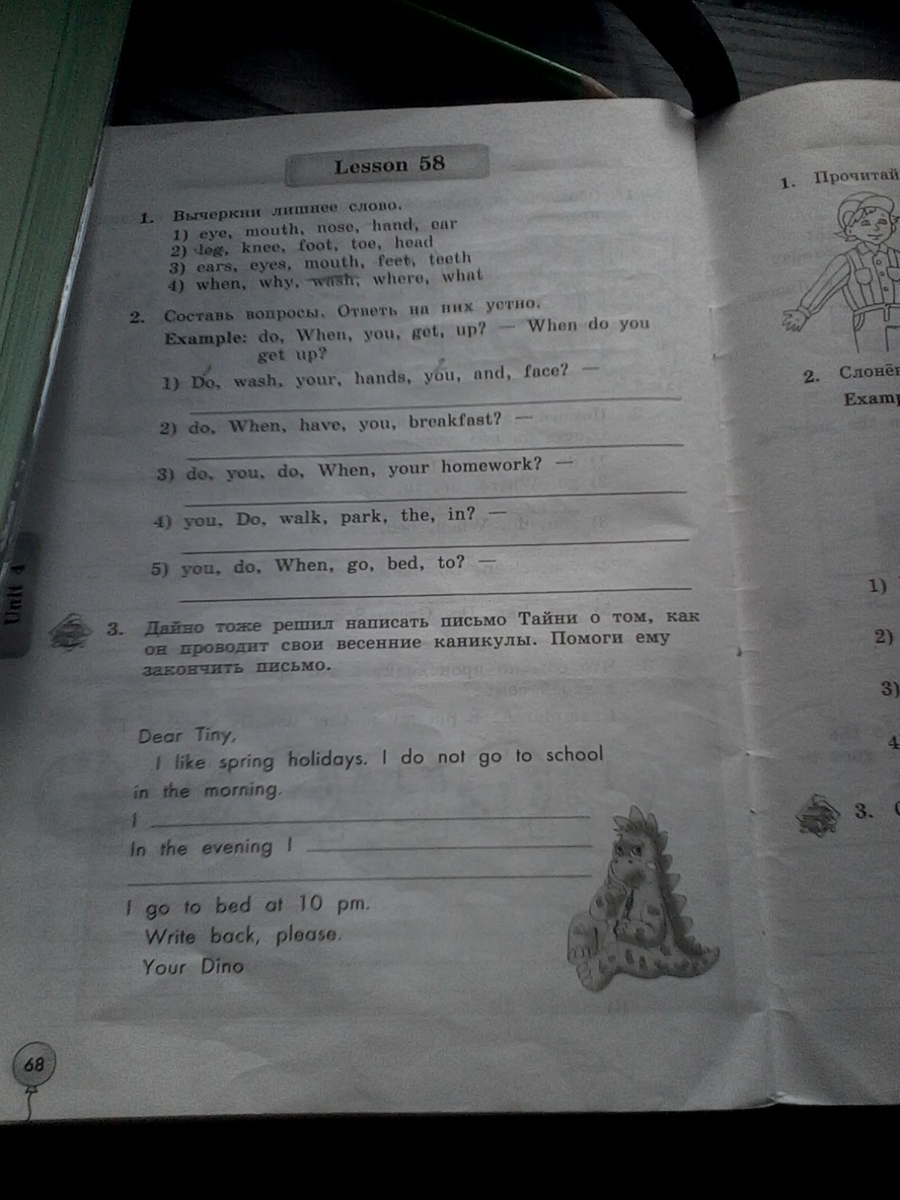 Lesson 58
1. Вычеркни лишнее слово.
1) eye, mouth, nose, hand, ear
2) leg, knee, foot, toe, head
3) ears, eyes, mouth, feet, teeth
4) when, why, wash, where, what
2. Составь вопросы. Ответь на них устно.
Example: do, When, you, get, up? — When do you
get up?
1) Do, wash, your, hands, you, and, face? —
2) do, When, have, you, breakfast? —
3) do, you, do, When, your homework? —
4) you, Do, walk, park, the, in? —
5) you, do, When, go, bed, to? —
Unit 4
3. Дайно тоже решил написать письмо Тайни о том, как
он проводит свои весенние каникулы. Помоги ему
закончить письмо.
Dear Tiny,
I like spring holidays. I do not go to school
in the morning.
I
In the evening I
I go to bed at 10 pm.
Write back, please.
Your Dino
68
1. Прочитай
2. Слонён
Examp
1)
2)
3)
4
3.